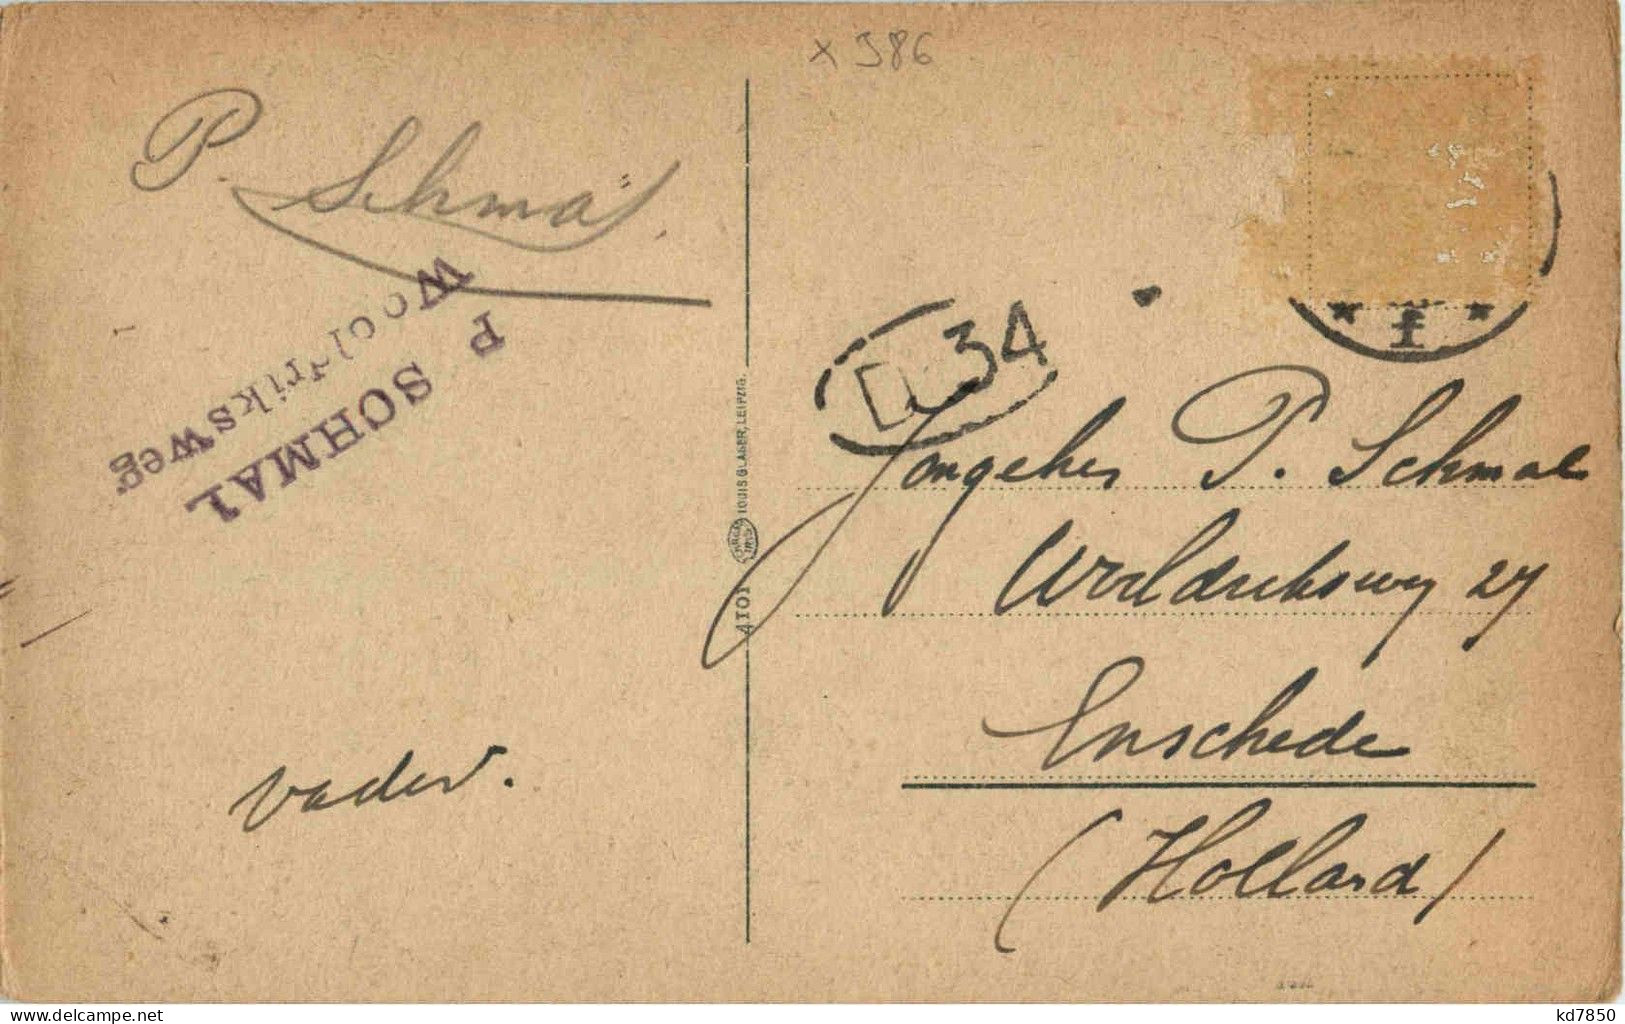 x 386
P. Schmal.
P SCHMAL
Wooldriksweg
vader.
LOUIS GLASER, LEIPZIG.
34
Jongeheer P. Schmal
Wooldriksweg 27
Enschede
(Holland)
* f *
kd7850
www.delcampe.net